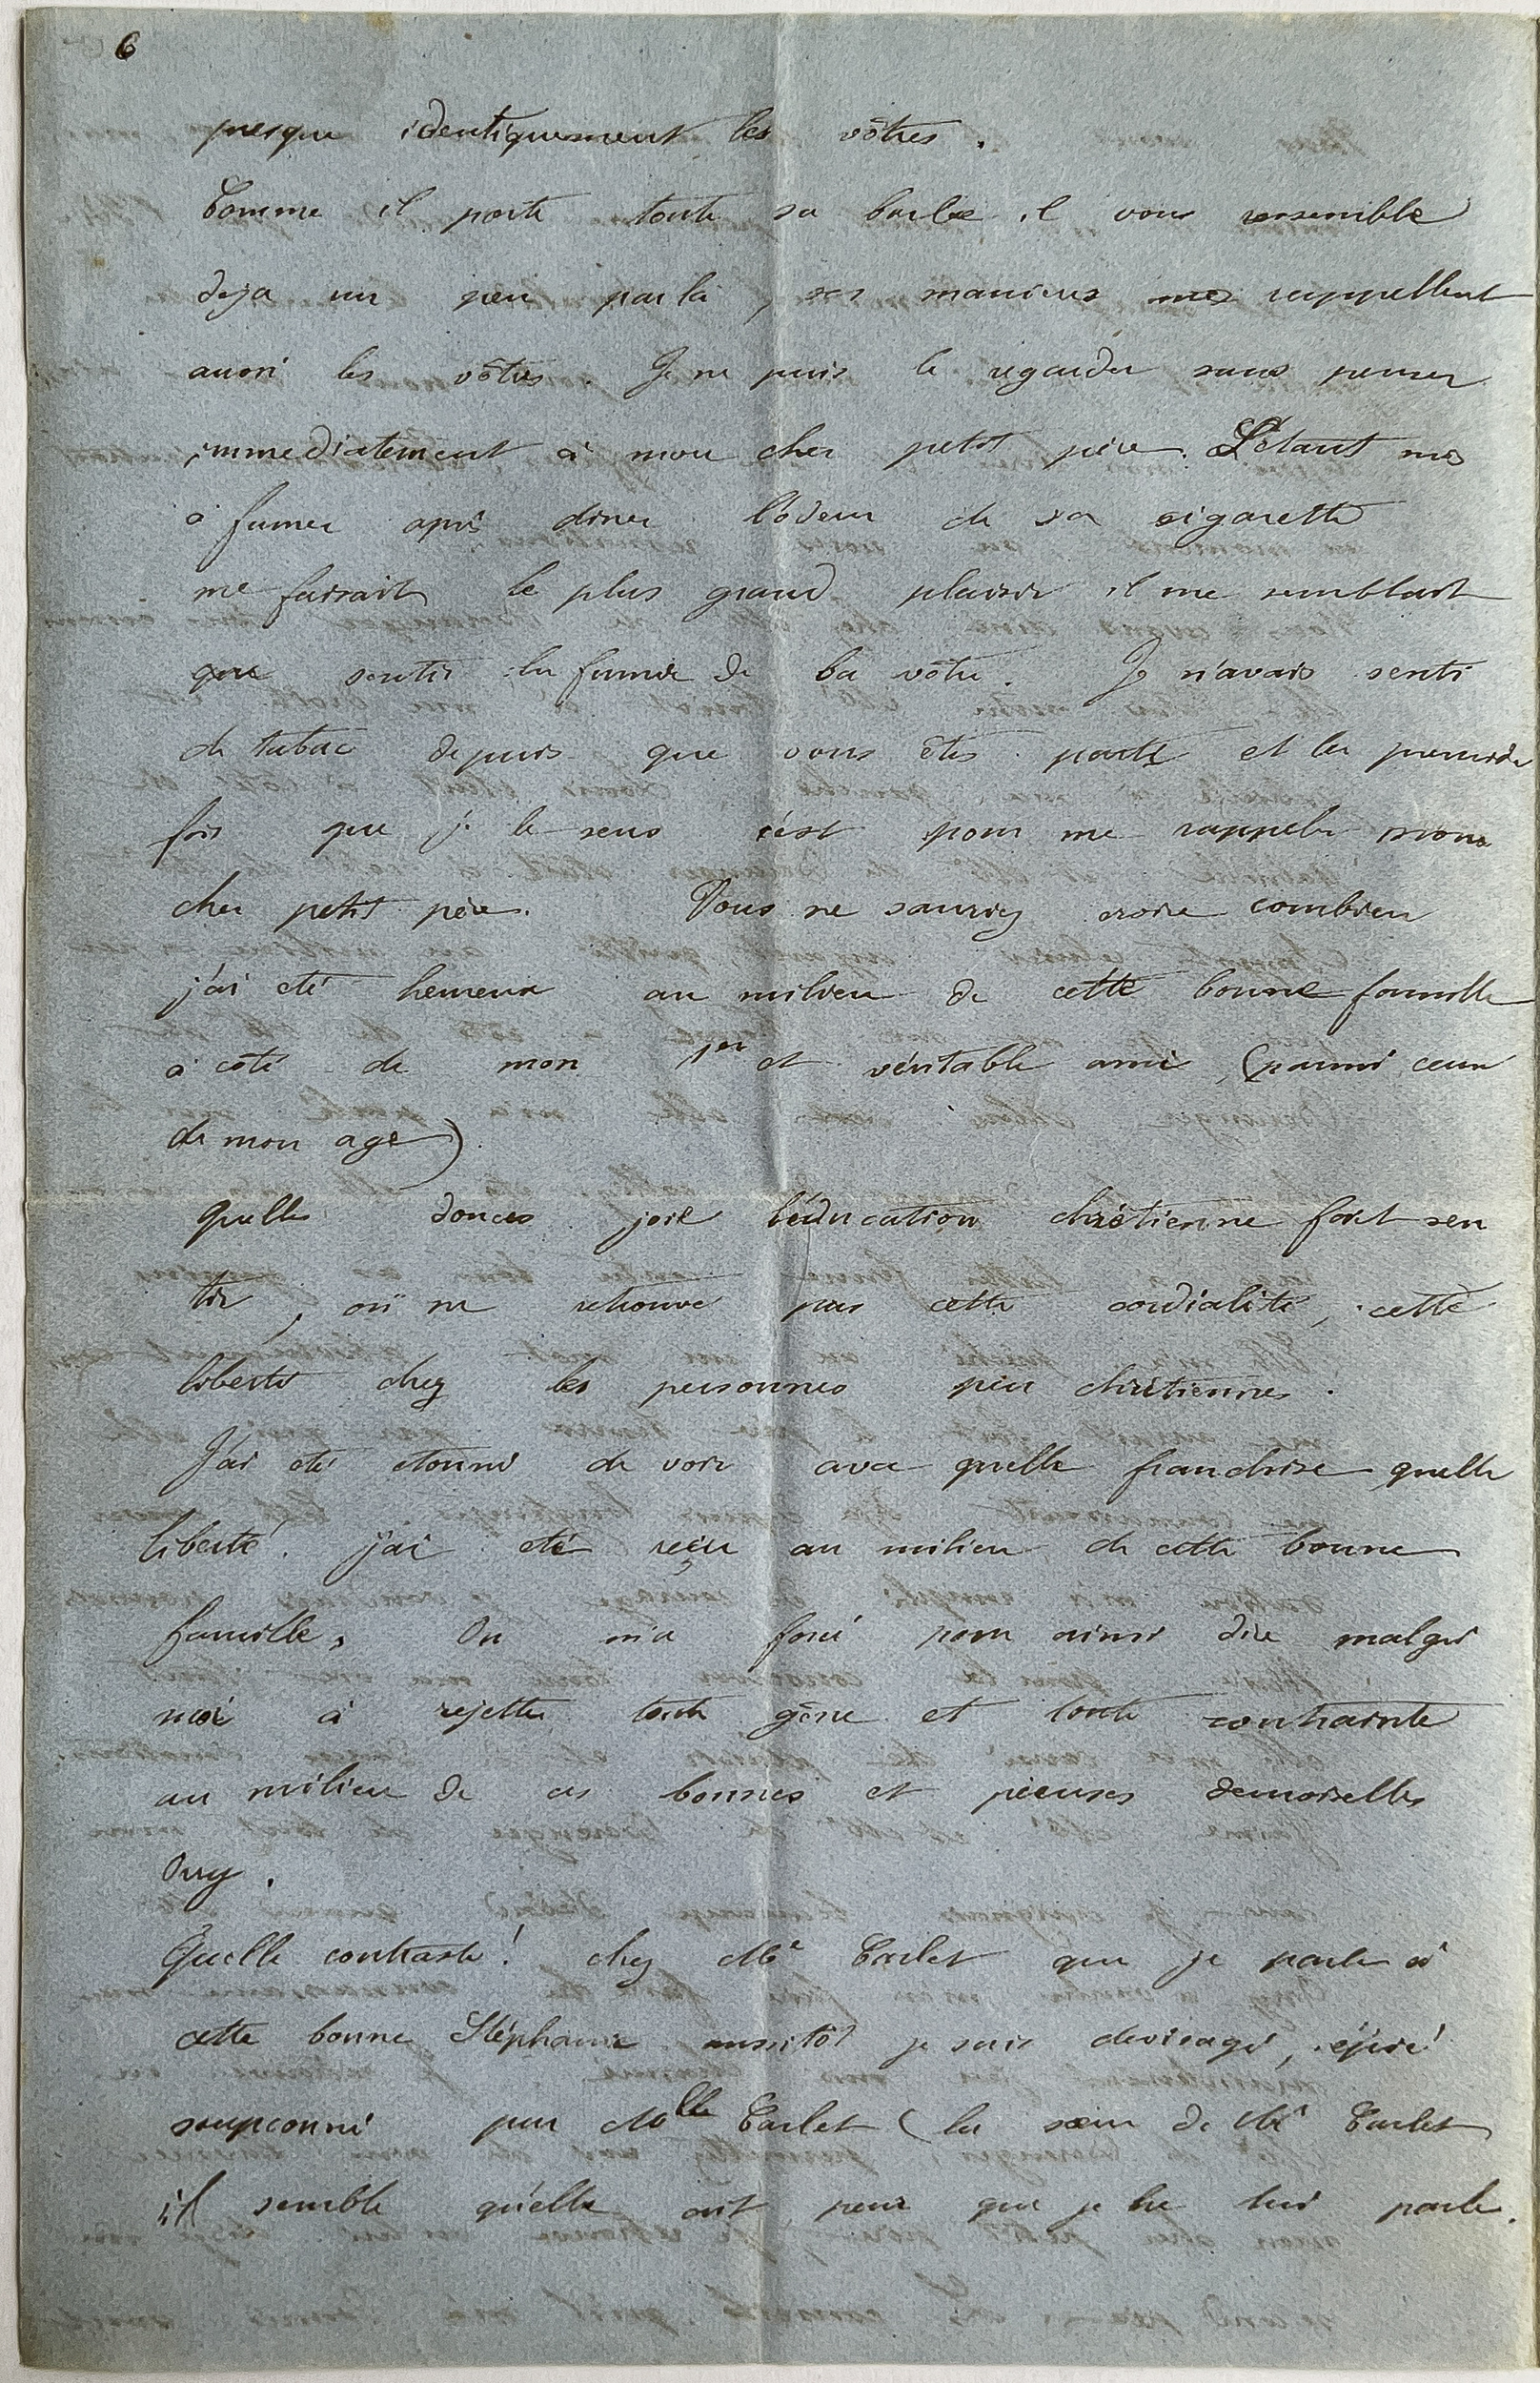 6
presque identiquement les vôtres.
Comme il porte toute sa barbe il vous ressemble
deja un peu par là, ses manieres me rappellent
aussi les vôtres. Je ne puis le regarder sans penser
immediatement à mon cher petit père. S'étant mis
à fumer après diner l'odeur de sa cigarette
me faisait le plus grand plaisir il me semblait
que sentir la fumée de la vôtre. Je n'avais senti
de tabac depuis que vous êtes parti et la première
fois que je le sens c'est pour me rappeler mon
cher petit père. Vous ne sauriez croire combien
j'ai eté heureux au milieu de cette bonne famille
à coté de mon 1er et véritable ami, (parmi ceux
de mon age)
quelle douces joie l'éducation chrétienne fait sen
tir, on ne retrouve pas cette cordialité, cette
liberté chez les personnes peu chrétiennes.
J'ai eté etonné de voir avec quelle franchise quelle
liberté j'ai eté reçu au milieu de cette bonne
famille. On m'a forcé pour ainsi dire malgré
moi à rejetter toute gêne et toute contrainte
au milieu de ces bonnes et pieuses demoiselles
Ory.
Quelle contraste! chez Mr Carlet que je parle à
cette bonne Stéphanie aussitôt je suis devisagé, épié
soupconné par Mlle Carlet (la sœur de Mr Carlet
il semble qu'elle ait peur que je ne lui parle.